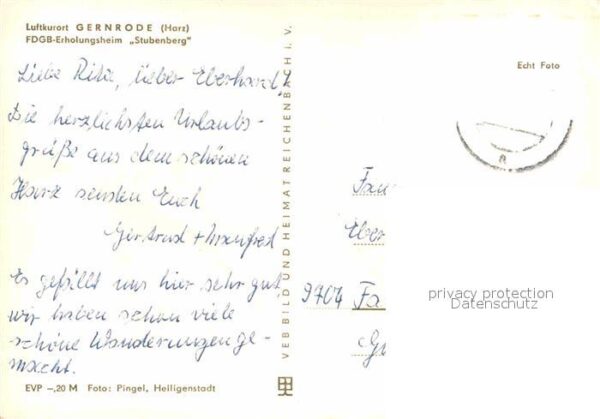 Luftkurort GERNRODE (Harz)
FDGB-Erholungsheim „Stubenberg"
Echt Foto
Liebe Rita, lieber Eberhard!
Die herzlichsten Urlaubs-
grüße aus dem schönen
Harz senden Euch
Gertrud + Manfred
Es gefällt uns hier sehr gut,
wir haben schon viele
schöne Wanderungen ge-
macht.
VEB BILD UND HEIMAT REICHENBACH I. V.
Fam
Eber
9704 Fa
privacy protection
Datenschutz
EVP –,20 M Foto: Pingel, Heiligenstadt